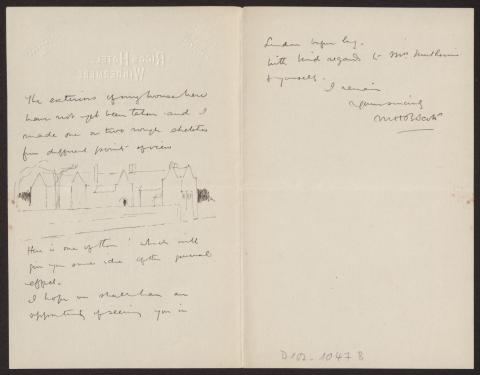 The exteriors of my house here
have not yet been taken and I
made one or two rough sketches
from different points of view
Here is one of them which will
give you some idea of the general
effect.
I hope we shall have an
opportunity of seeing you in
London before long.
With kind regards to Mrs Muthesius
& yourself.
I remain
Yours sincerely
M H Baillie Scott
RIGG'S HOTEL
WINDERMERE
D 102-1047 B